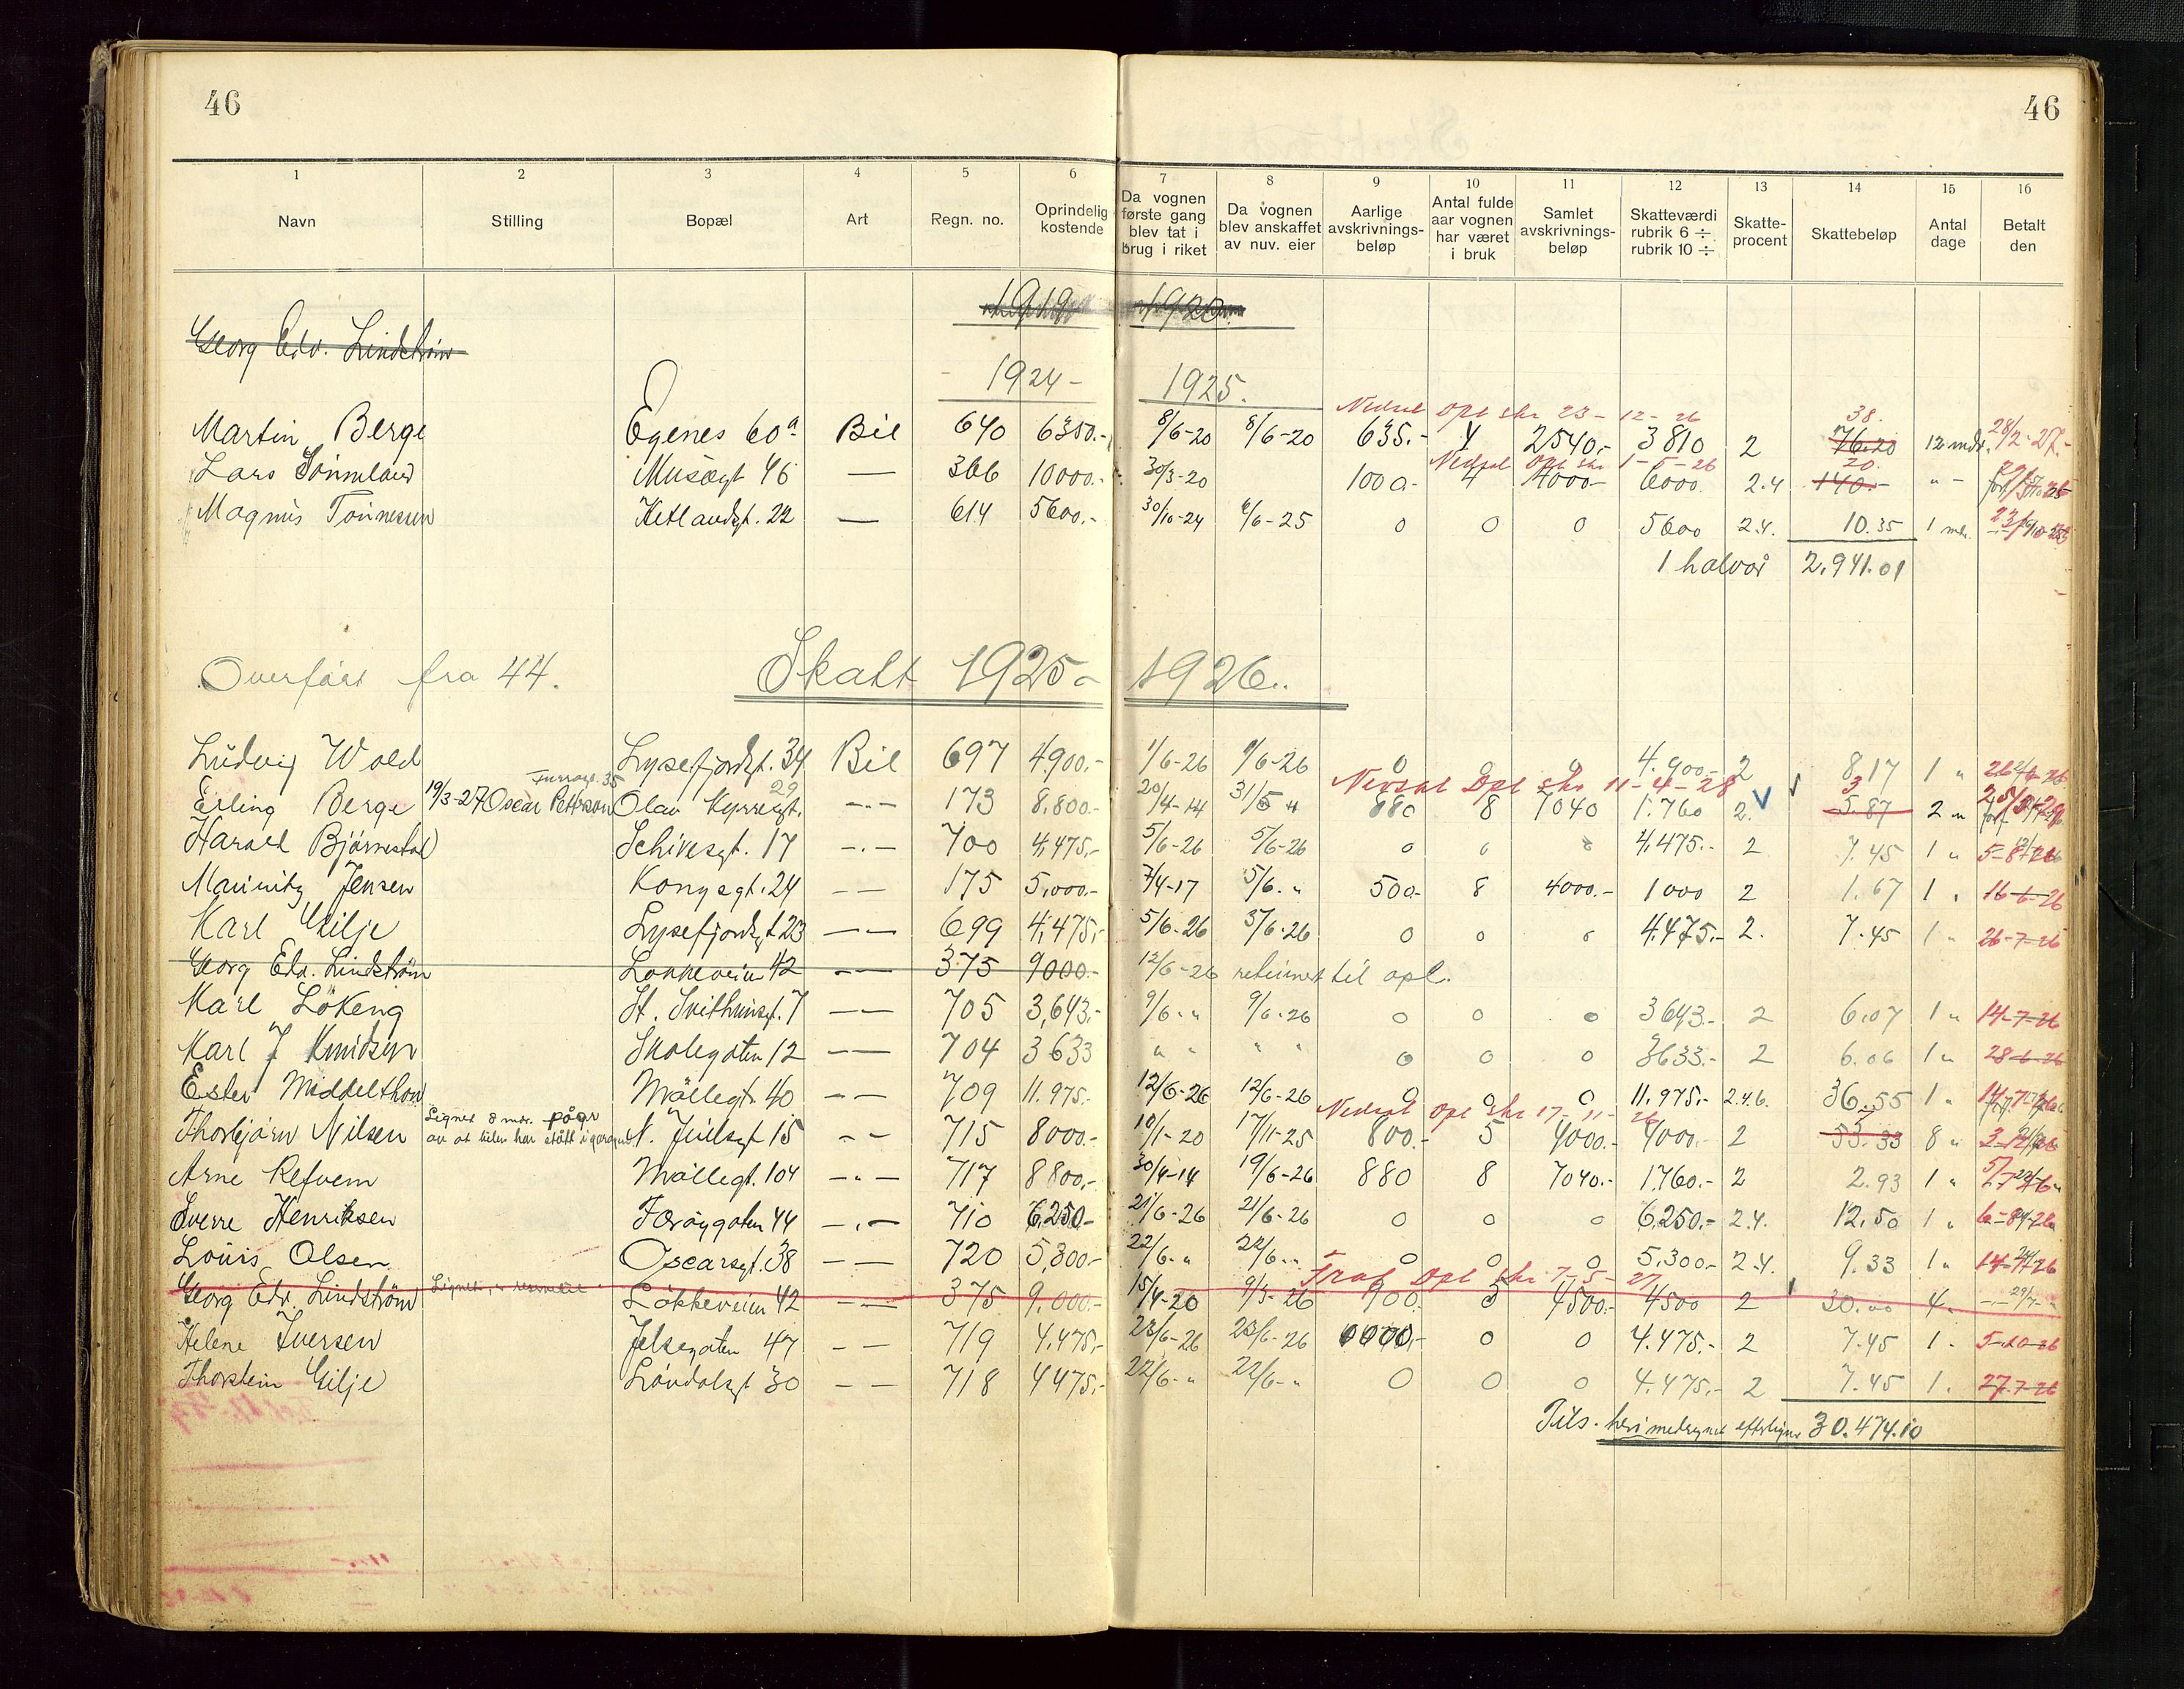 46 46
1 2 3 4 5 6 7 8 9 10 11 12 13 14 15 16
Navn Stilling Bopæl Art Regn. no. Oprindelig kostende Da vognen første gang blev tat i brug i riket Da vognen blev anskaffet av nuv. eier Aarlige avskrivnings-beløp Antal fulde aar vognen har været i bruk Samlet avskrivnings-beløp Skatteværdi rubrik 6 ÷ rubrik 10 ÷ Skatte-procent Skattebeløp Antal dage Betalt den
1919 1920
Georg Edv. Lindstrøm
1924 - 1925.
Nedsat Opl skr 23-12-26 38.
Martin Berge Egenes 60a Bil 640 6350.- 8/6-20 8/6-20 635.- 4 2540.- 3810 2 76.20 12 mdr. 28/2-27.-
Nedsat Opl skr 1-5-26 20.
Lars Musægt 46 — 366 10000.- 30/3-20 1000.- 4 4000- 6000 2.4 140.- " -
Magnus Tönnesen Ketlandsgt. 22 — 614 5600.- 30/10-24 6/6-25 0 0 0 5600 2.4. 10.35 1 mdr.
1 halvår 2.941.01
Overført fra 44. Skatt 1925- 1926.
Ludvig Wold Lysefjordgt. 34 Bil 697 4.900.- 1/6-26 1/6-26 0 0 0 4.900.- 2 8.17 1 "
Nedsat Opl skr 11-4-28 3
Erling Berge 19/3-27 Oscar Petterson Olav Kyrresgt. 29 -"- 173 8.800.- 20/4-14 31/5 " 880 8 7040 1.760 2. 5.87 2 "
Harald Bjørnestad Schivesgt. 17 -"- 700 4.475.- 5/6-26 5/6-26 0 0 0 4.475.- 2 7.45 1 "
Mauritz Jensen Kongsgt. 24 - — 175 5.000.- 7/4-17 5/6. " 500- 8 4000.- 1000 2 1.67 1 " 16-6-26
Karl Gilje Lysefjordgt 23 - — 699 4.475.- 5/6-26 5/6-26 0 0 0 4.475.- 2. 7.45 1 " 26-7-26
Georg Edv. Lindström Lökkeveien 42 - — 375 9000.- 12/6-26 returnert til opl.
Karl Lökeng St. Svithunsgt. 7 - — 705 3,643.- 9/6. " 9/6-26 0 0 0 3643.- 2 6.07 1 " 14-7-26
Karl J Knudsen Skolegaten 12 - — 704 3633 " " " " 0 0 0 3633.- 2 6.06 1 " 28-6-26
Ester Middelthon Möllegt. 40 - — 709 11.975.- 12/6-26 12/6-26 0 0 0 11.975.- 2.4.6. 36.55 1 "
Nedsat Opl skr 17-11-26
Thorbjörn Nilsen Lignet 8 mdr. pågr av at bilen har stått i garagen N. Juelsgt 15 - - 715 8000.- 10/1-20 17/11-25 800.- 5 4000.- 4000.- 2 53.33 8 "
Arne Refvem Möllegt. 104 -"- 717 8800.- 30/4-14 19/6-26 880 8 7040.- 1760.- 2 2.93 1 "
Sverre Henriksen Færöygaten 44 -"- 710 6.250- 21/6-26 21/6-26 0 0 0 6.250.- 2.4. 12.50 1 "
Louis Olsen Oscarsgt. 38 - — 720 5,300- 22/6. " 22/6. " 0 0 0 5.300.- 2.4. 9.33 1 "
Fraf Opl skr 7-5-27
Georg Edv. Lindström Lökkeveien 42 - — 375 9.000.- 15/4-20 9/3-26 900. 5 4500.- 4500 2 30.00 4 "
Helene Iversen Jelsegaten 47 - — 719 4.475.- 23/6-26 23/6-26 0 0 4.475.- 2 7.45 1 "
Thorstein Gilje Lövdalsgt 30 - — 718 4475.- 22/6- " 22/6- " 0 0 0 4.475.- 2 7.45 1 " 27.7-26
Tils. heri medregnet efterligne 30.474.10